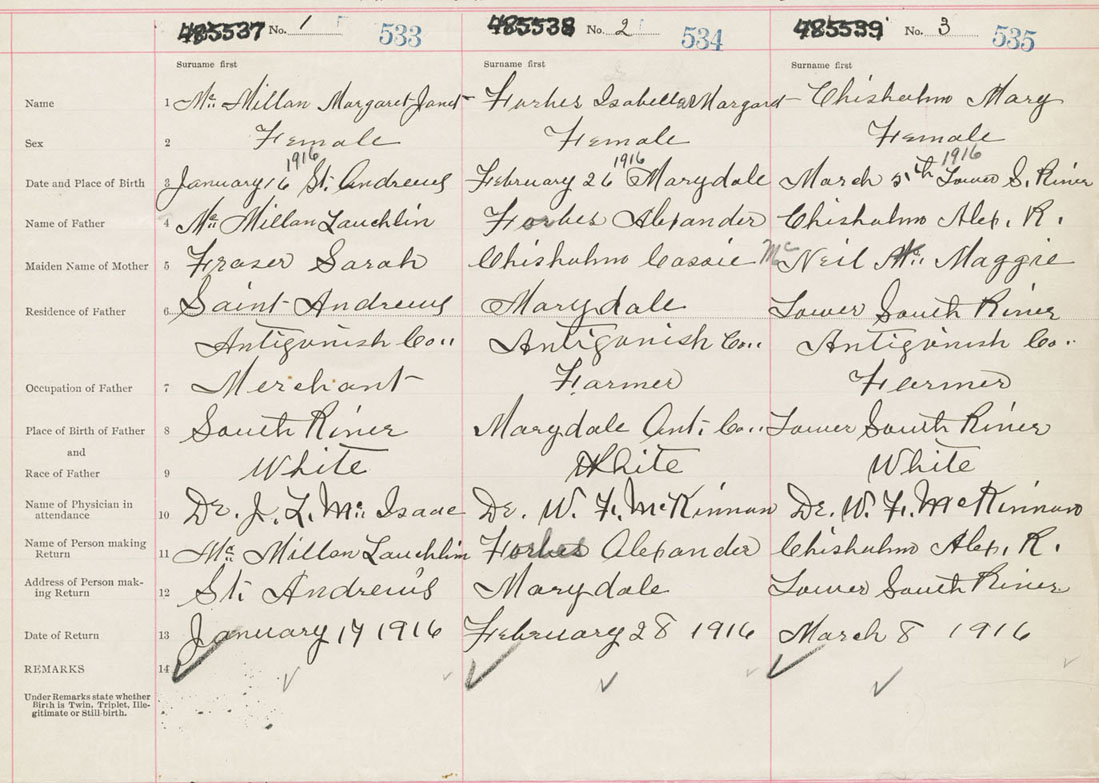 485537 No. 1 533 485538 No. 2 534 485539 No. 3 535
Surname first Surname first Surname first
Name 1 Mc Millan Margaret Janet Forbes Isabella Margaret Chisholm Mary
Sex 2 Female Female Female
1916 1916 1916
Date and Place of Birth 3 January 16 St. Andrews February 26 Marydale March 5th Lower S. River
Name of Father 4 Mc Millan Lauchlin Forbes Alexander Chisholm Alex. R.
Maiden Name of Mother 5 Fraser Sarah Chisholm Cassie Mc Neil Maggie
Residence of Father 6 Saint Andrews Marydale Lower South River
Antigonish Co.. Antigonish Co.. Antigonish Co..
Occupation of Father 7 Merchant Farmer Farmer
Place of Birth of Father 8 South River Marydale Ant. Co.. Lower South River
and
Race of Father 9 White White White
Name of Physician in
attendance 10 Dr. J. L. Mc Isaac Dr. W. F. McKinnon Dr. W. F. McKinnon
Name of Person making
Return 11 Mc Millan Lauchlin Forbes Alexander Chisholm Alex. R.
Address of Person mak-
ing Return 12 St. Andrew's Marydale Lower South River
Date of Return 13 January 17 1916 February 28 1916 March 8 1916
REMARKS 14
Under Remarks state whether
Birth is Twin, Triplet, Ille-
gitimate or Still birth.